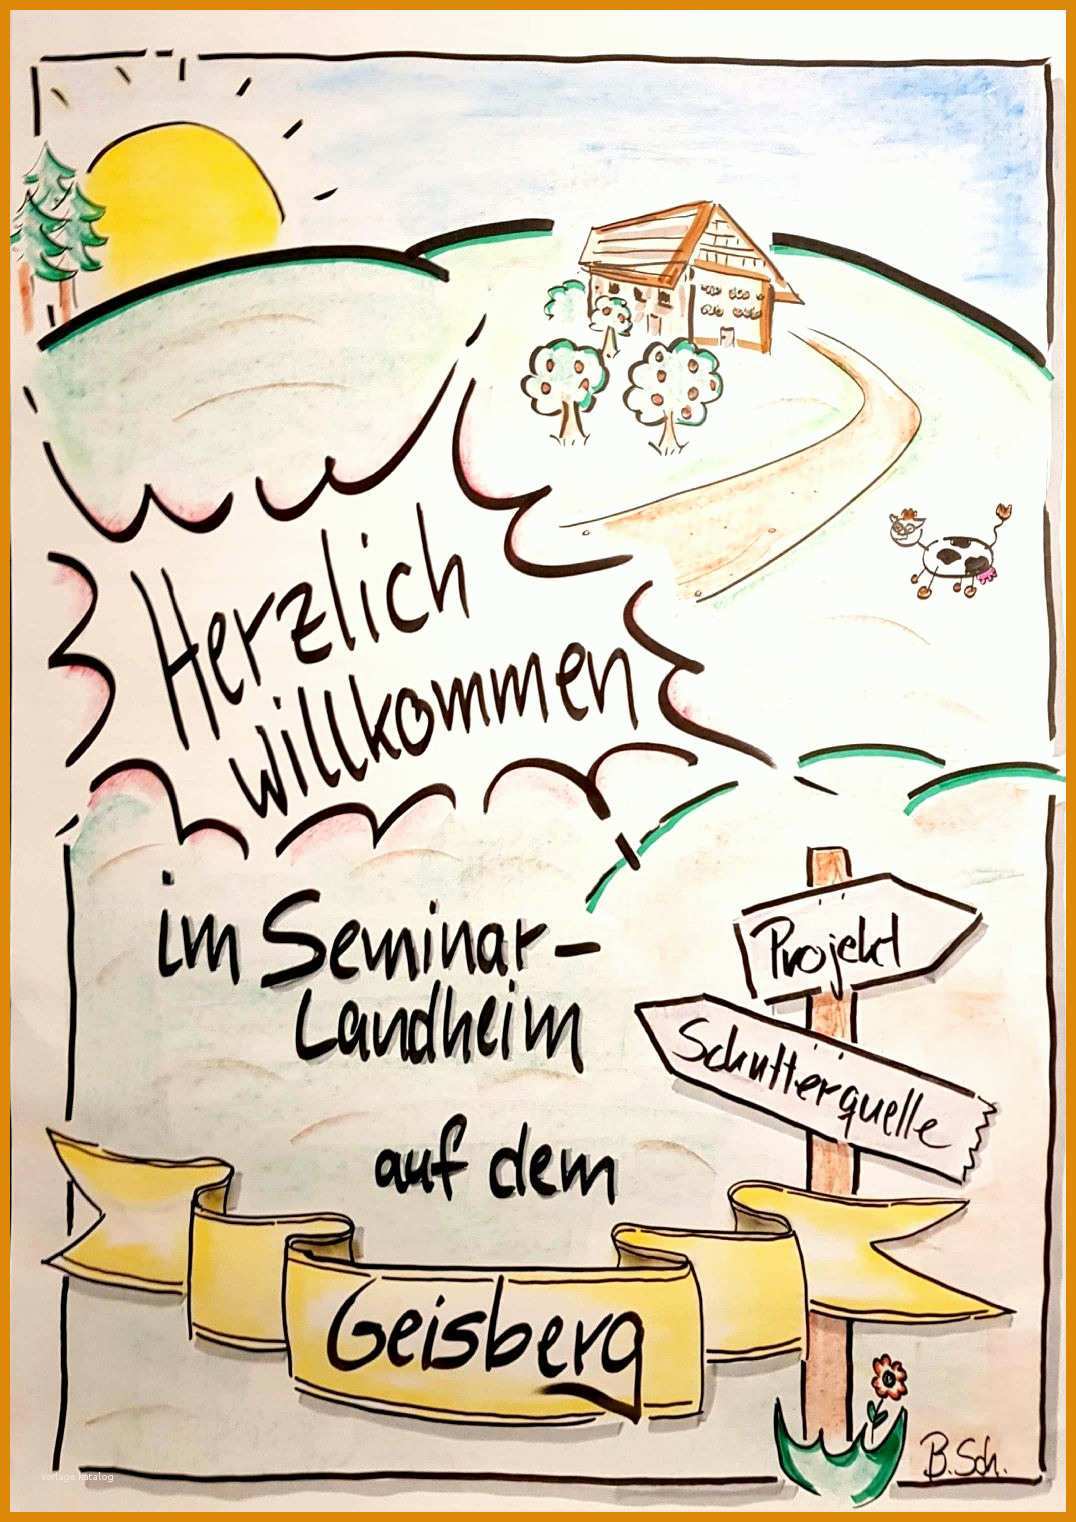 Herzlich
willkommen
im Seminar-
Landheim
auf dem
Geisberg
Projekt
Schutterquelle
B.Sch.
vorlage katalog